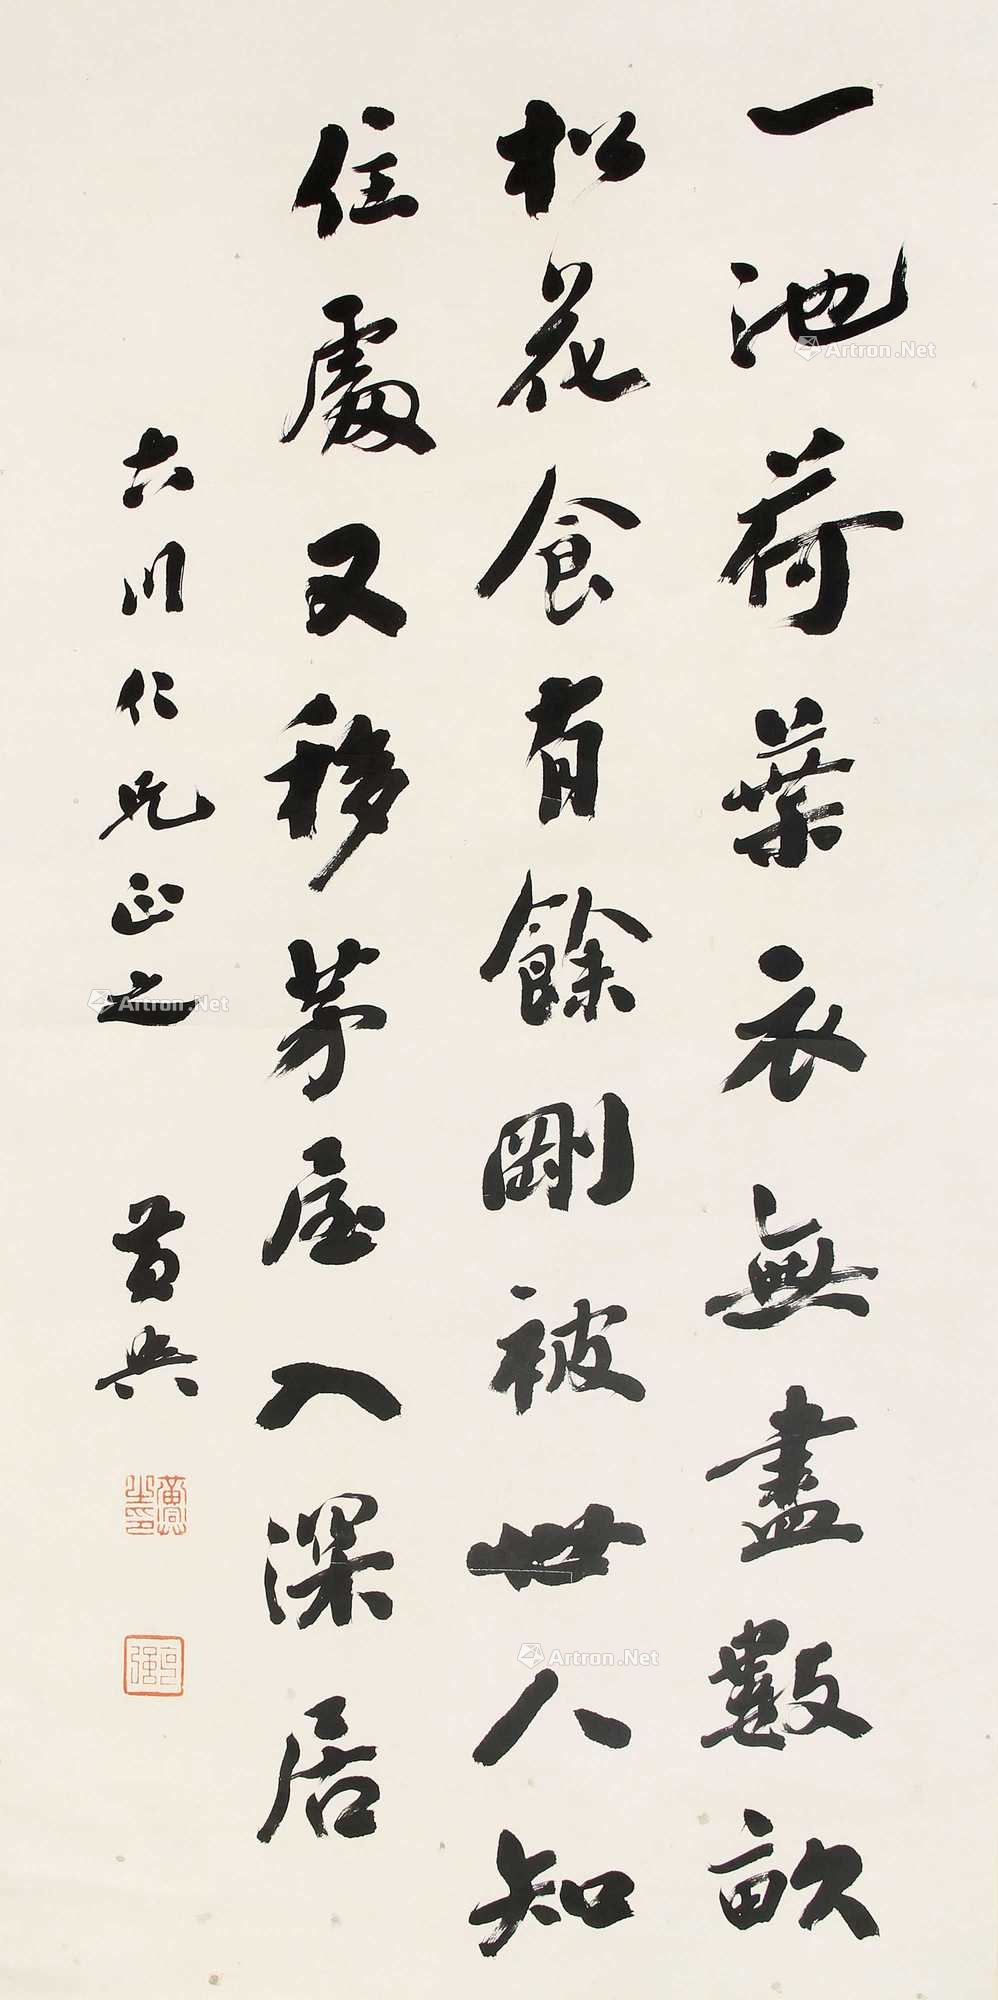 一池荷葉衣無盡數畝
松花食有餘剛被世人知
住處又移茅屋入深居
六川仁兄正之 黃興
黃興之印
Artron.Net
Artron.Net
Artron.Net